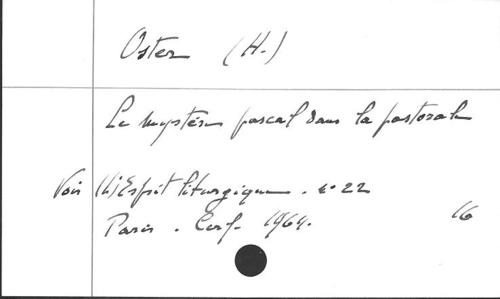 Oster (H.)
Le mystère pascal dans la pastorale
Voir (L') Esprit liturgique. n° 22
Paris. Cerf. 1964.
16